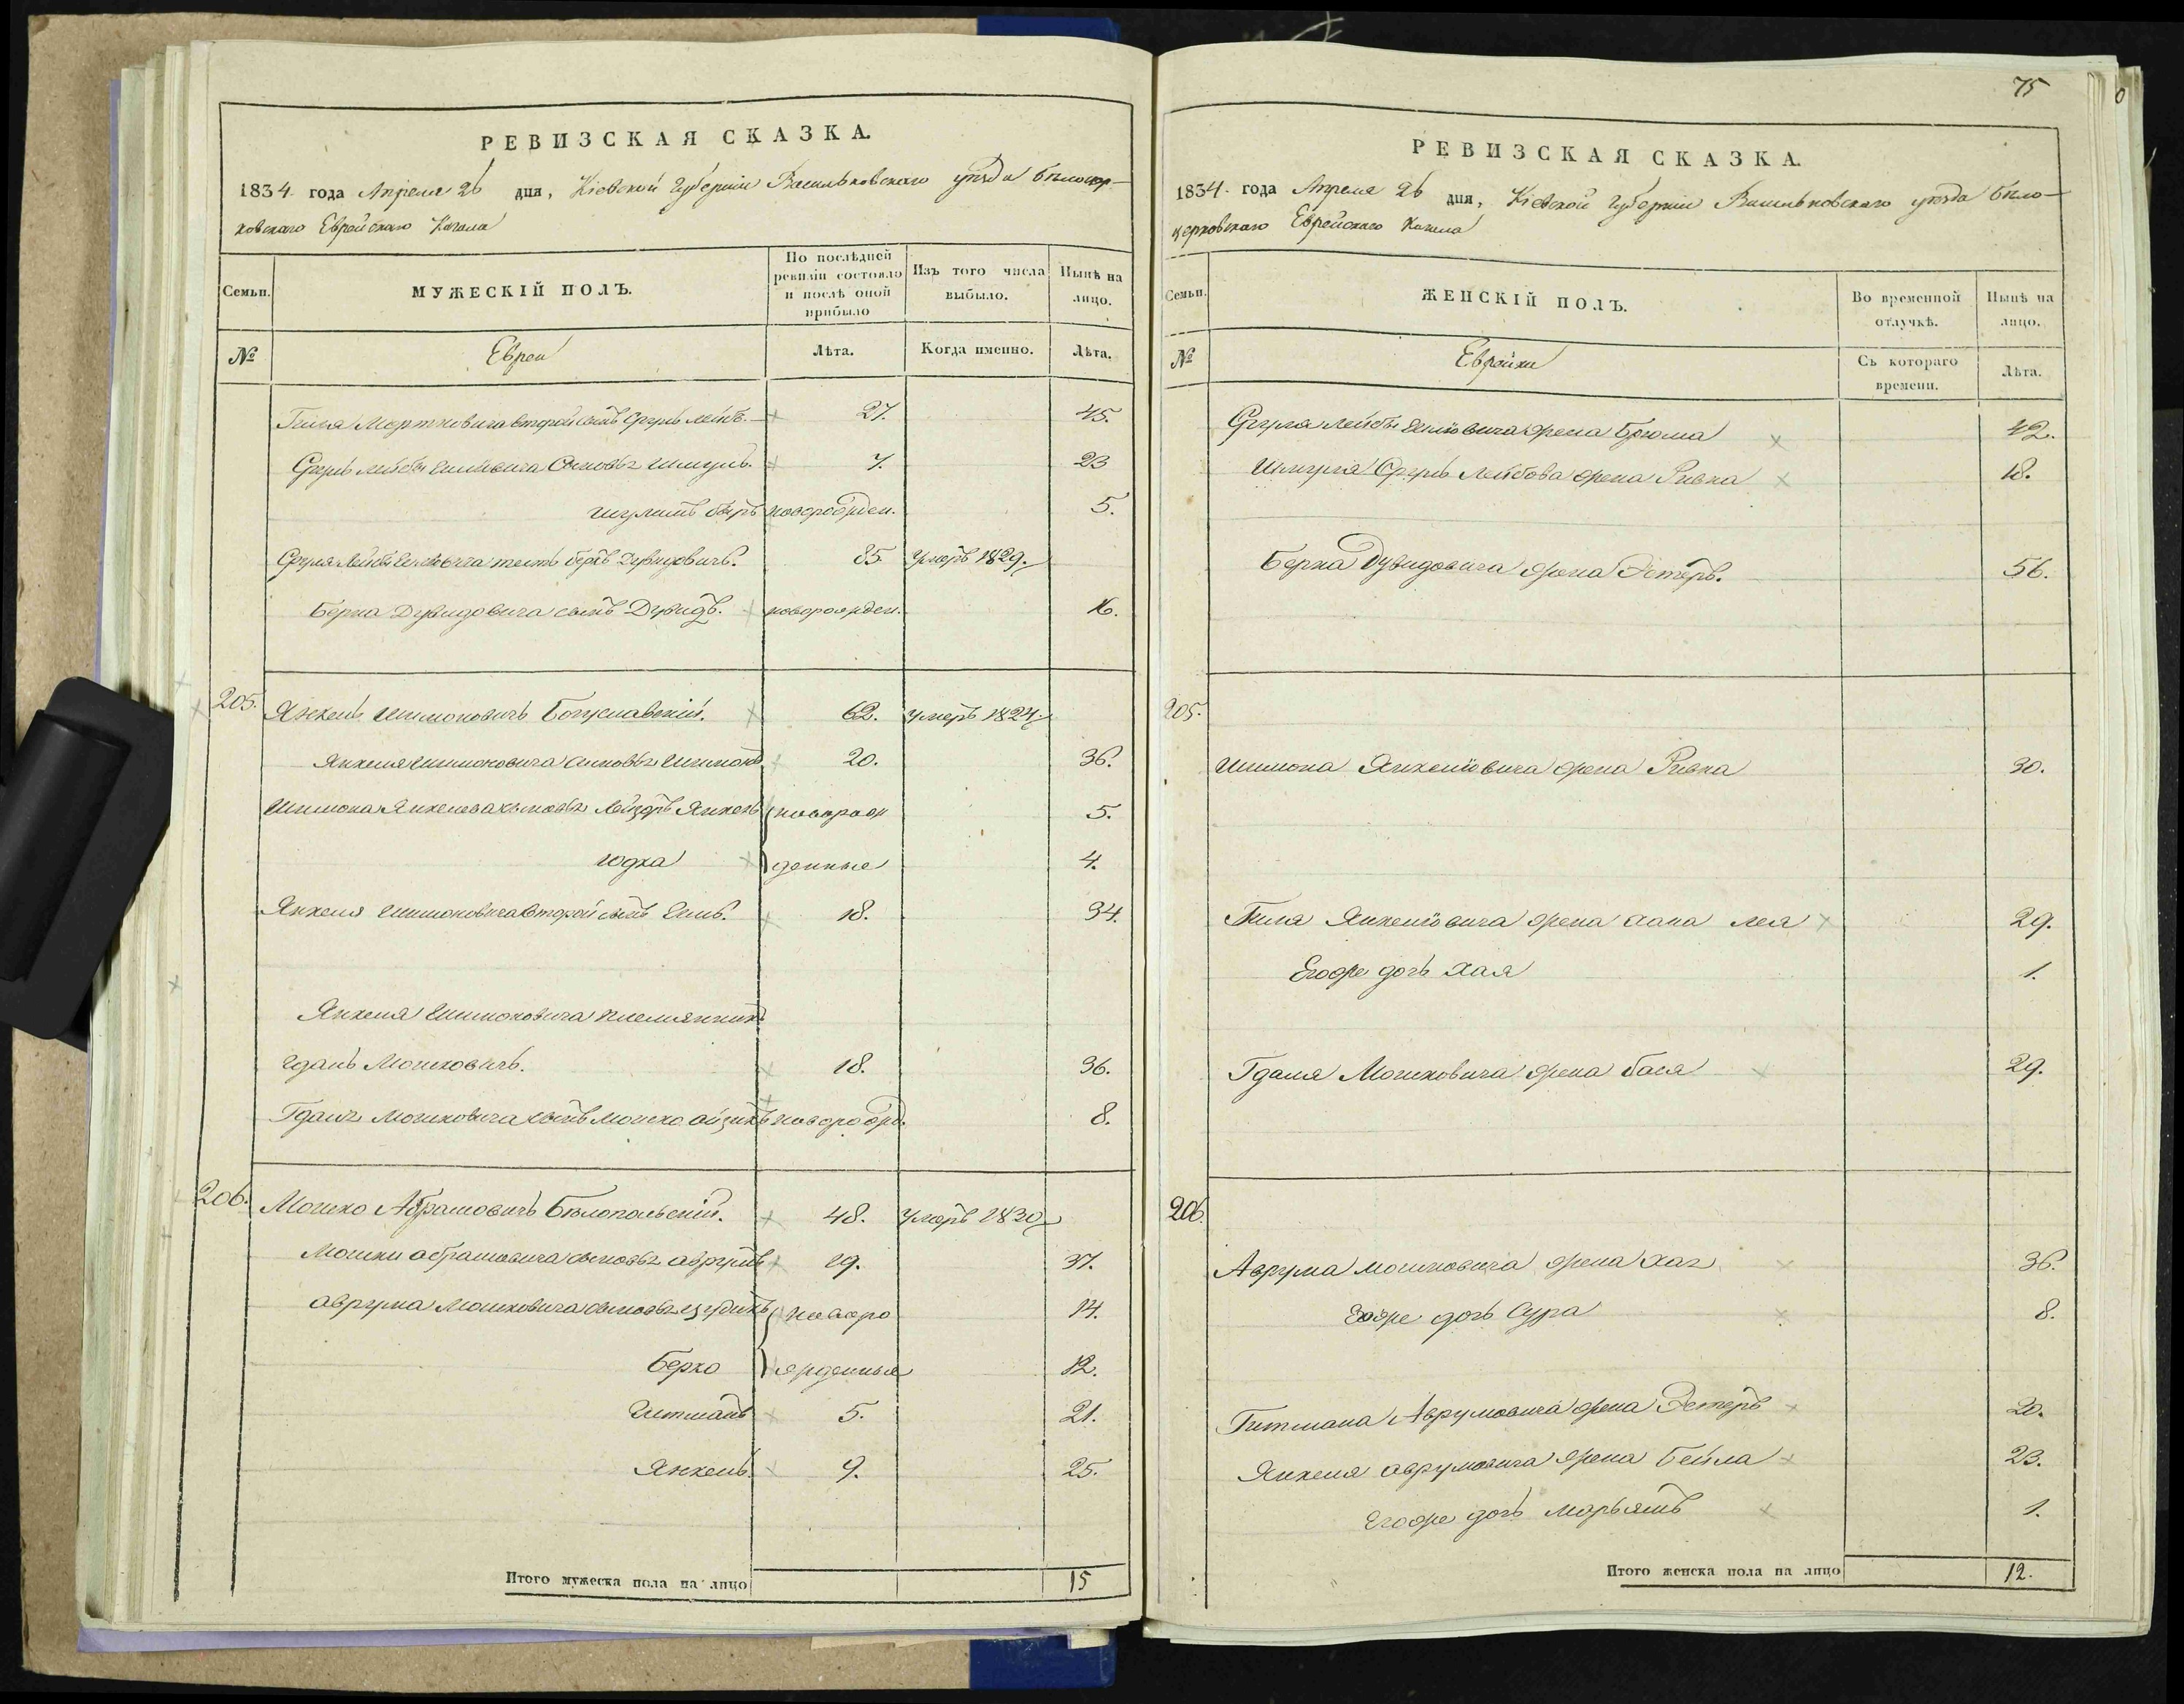 РЕВИЗСКАЯ СКАЗКА.
1834 года Апреля 26 дня, Кіевской Губерніи Васильковскаго уѣзда бѣлоцер-
ковскаго Еврейскаго Кагала
Семьи.
МУЖЕСКІЙ ПОЛЪ.
По послѣдней ревизіи состояло и послѣ оной прибыло
Изъ того числа выбыло.
Нынѣ на лицо.
№
Евреи
Лѣта.
Когда именно.
Лѣта.
Мортковича второй сынъ Сруль Лейбъ. 27. 45.
Сруль Лейбы Сыновья Шмуль. 7. 23
беръ новорожден. 5.
тесть беръ Дувидовичъ. 85 умеръ 1829.
Берка Дувидовича сынъ Дувидъ. новорожден. 16.
205. Янкель Шимоновичъ Богуславскій. 62. умеръ 1824
Янкеля Шимоновича сыновья Шимонъ 20. 36.
Шимона Янкелева сыновья Лейзоръ Янкель новорож 5.
юдка денные 4.
Янкеля Шимоновича второй сынъ 18. 34.
Янкеля Шимоновича племянникъ
Гдаль Мошковичъ. 18. 36.
Мошковича сынъ Мошко Айзикъ новорожд. 8.
206. Мошко Абрамовичъ Бѣлопольскій. 48. умеръ 1830
Мошки абрамовича сыновья аврумъ 19. 37.
аврума Мошковича сыновья новоро 14.
Берко жденныя 12.
Гитманъ 5. 21.
Янкель 9. 25.
Итого мужеска пола на лицо 15
75
РЕВИЗСКАЯ СКАЗКА.
1834. года Апреля 26 дня, Кіевской Губерніи Васильковскаго уѣзда бѣло-
церковскаго Еврейскаго Кагала
Семьи.
ЖЕНСКІЙ ПОЛЪ.
Во временной отлучкѣ.
Нынѣ на лицо.
№
Еврейки
Съ котораго времени.
Лѣта.
Сруля Лейбы жена 42.
Шмуля Сруль Лейбова жена Ривка 18.
Берка Дувидовича жена Эстеръ. 56.
205.
Шимона Янкелiовича жена Ривка 30.
Янкелiовича жена хана лея 29.
Егоже дочь Хая 1.
Гдаля Мошковича жена бася 29.
206.
Аврума мошковича жена 36.
Егоже дочь Сура 8.
Гитмана Аврумовича жена Эстеръ 20.
Янкеля аврумовича жена Бейла 23.
Егоже дочь Марьямъ 1.
Итого женска пола на лицо 12.